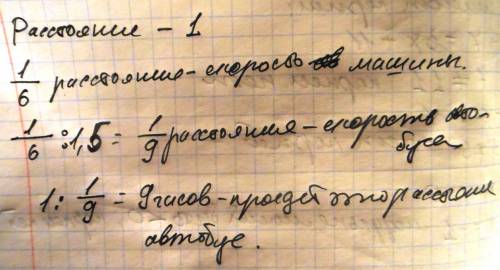 Расстояние - 1
1/6 расстояния - скорость машины.
1/6 : 1,5 = 1/9 расстояния - скорость автобуса
1 : 1/9 = 9 часов - проедет это расстояние
автобус.